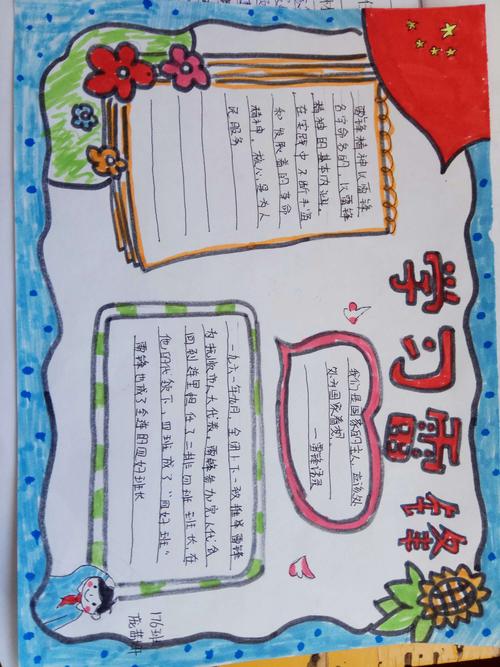 学习雷锋
雷锋精神以雷锋
名字命名的，以雷锋
精神的基本内涵，
在实践中不断丰富
和发展着的革命
精神，核心是为人
民服务
我们是国家的主人，应该处
处为国家着想。
—雷锋语录
一九六一年九月，全团上下一致推举雷锋
为抚顺市人大代表，雷锋参加完人代会
回到连里担任了二排四班班长，在
他的带领下，四班成了“四好班”
雷锋也成了全连的四好班长
176班